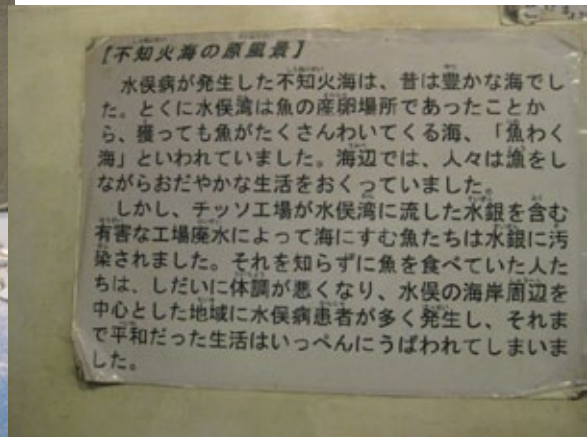 【不知火海の原風景】
水俣病が発生した不知火海は、昔は豊かな海でし
た。とくに水俣湾は魚の産卵場所であったことか
ら、獲っても魚がたくさんわいてくる海、「魚わく
海」といわれていました。海辺では、人々は漁をし
ながらおだやかな生活をおくっていました。
しかし、チッソ工場が水俣湾に流した水銀を含む
有害な工場廃水によって海にすむ魚たちは水銀に汚
染されました。それを知らずに魚を食べていた人た
ちは、しだいに体調が悪くなり、水俣の海岸周辺を
中心とした地域に水俣病患者が多く発生し、それま
で平和だった生活はいっぺんにうばわれてしまいま
した。